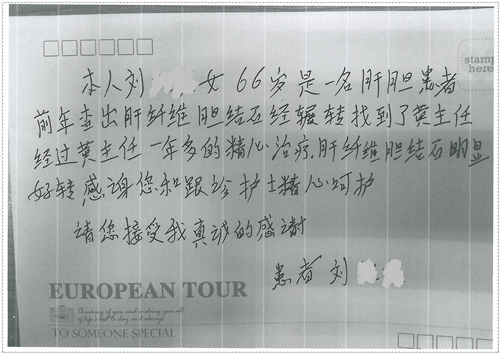 stamp
here
本人刘 女 66岁是一名肝胆患者
前年查出肝纤维胆结石经辗转找到了黄主任
经过黄主任一年多的精心治疗.肝纤维胆结石明显
好转感谢您和跟诊护士精心呵护
请您接受我真诚的感谢
患者 刘
EUROPEAN TOUR
Thinking of you and wishing you all
of life's best to day and always
TO SOMEONE SPECIAL